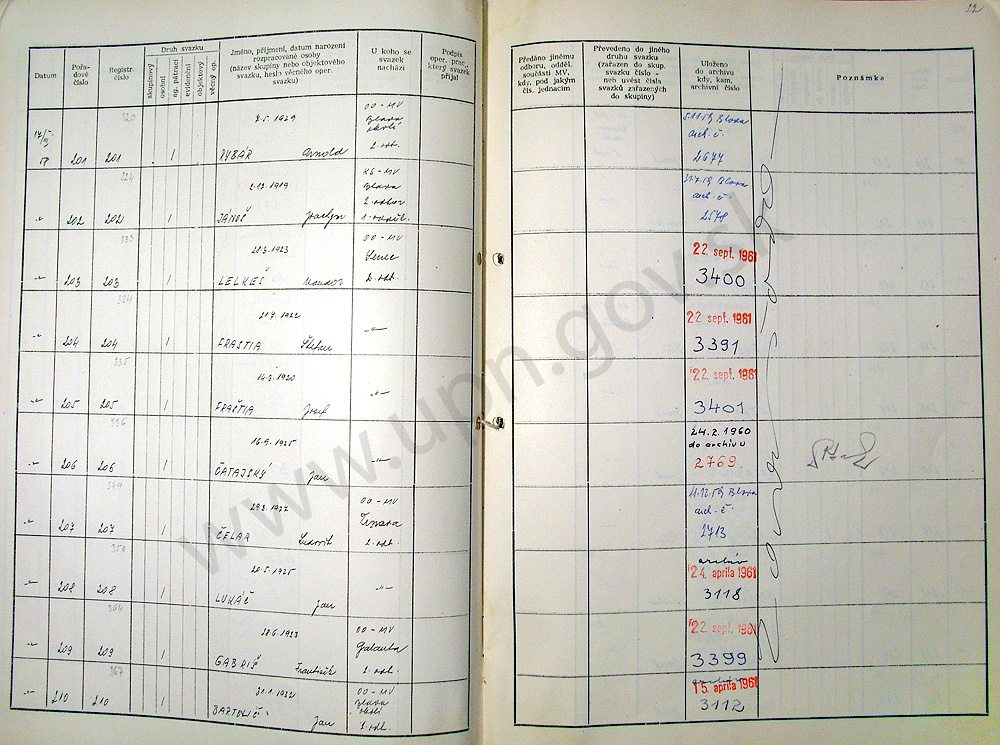 22
Datum
Pořadové číslo
Registr. číslo
Druh svazku
skupinový
osobní
ag. pátrací
evidenční
objektový
věcný op.
Jméno, příjmení, datum narození
rozpracované osoby
(název skupiny nebo objektového
svazku, heslo věcného oper.
svazku)
U koho se
svazek
nachází
Podpis
oper. prac.,
který svazek
přijal
Předáno jinému
odboru, odděl.
součásti MV,
kdy, pod jakým
čís. jednacím
Převedeno do jiného
druhu svazku
(zařazen do skup.
svazku číslo -
neb uvést čísla
svazků zařazených
do skupiny)
Uloženo
do archivu
kdy, kam,
archivní číslo
Poznámka
320
201 201 1 2.5.1929
RYBÁR Arnold
OO-MV
Blava
okolí
2. odt.
5.11.59 Blava
arch. č.
2677
324
202 202 1 2.12.1919
JÁNOŠ
KS-MV
Blava
2. odbor
Blava
arch. č.
333
203 203 1 21.3.1923
LELKEŠ
OO-MV
Senec
2. odt.
22. sept. 1961
3400
334
204 204 1 21.7.1922
FRAŠTIA Štefan
22. sept. 1961
3391
335
205 205 1 14.3.1920
FRAŠTIA Jozef
22. sept. 1961
3401
336
206 206 1 16.9.1925
ČATAJSKÝ Jan
24.2.1960
do archivu
2769
349
207 207 1 29.3.1922
ČELÁR
OO-MV
Trnava
2. odt.
Blava
arch. č.
2713
350
208 208 1 20.5.1925
LUKÁČ Jan
archív
24. apríla 1961
3118
364
209 209 1 28.6.1923
GABRIŠ František
OO-MV
Galanta
2. odt.
22. sept. 1961
3399
367
210 210 1 31.1.1922
BARTOVIČ Jan
OO-MV
Blava
okolí
2. odt.
15. apríla 1961
3112
www.upn.gov.sk